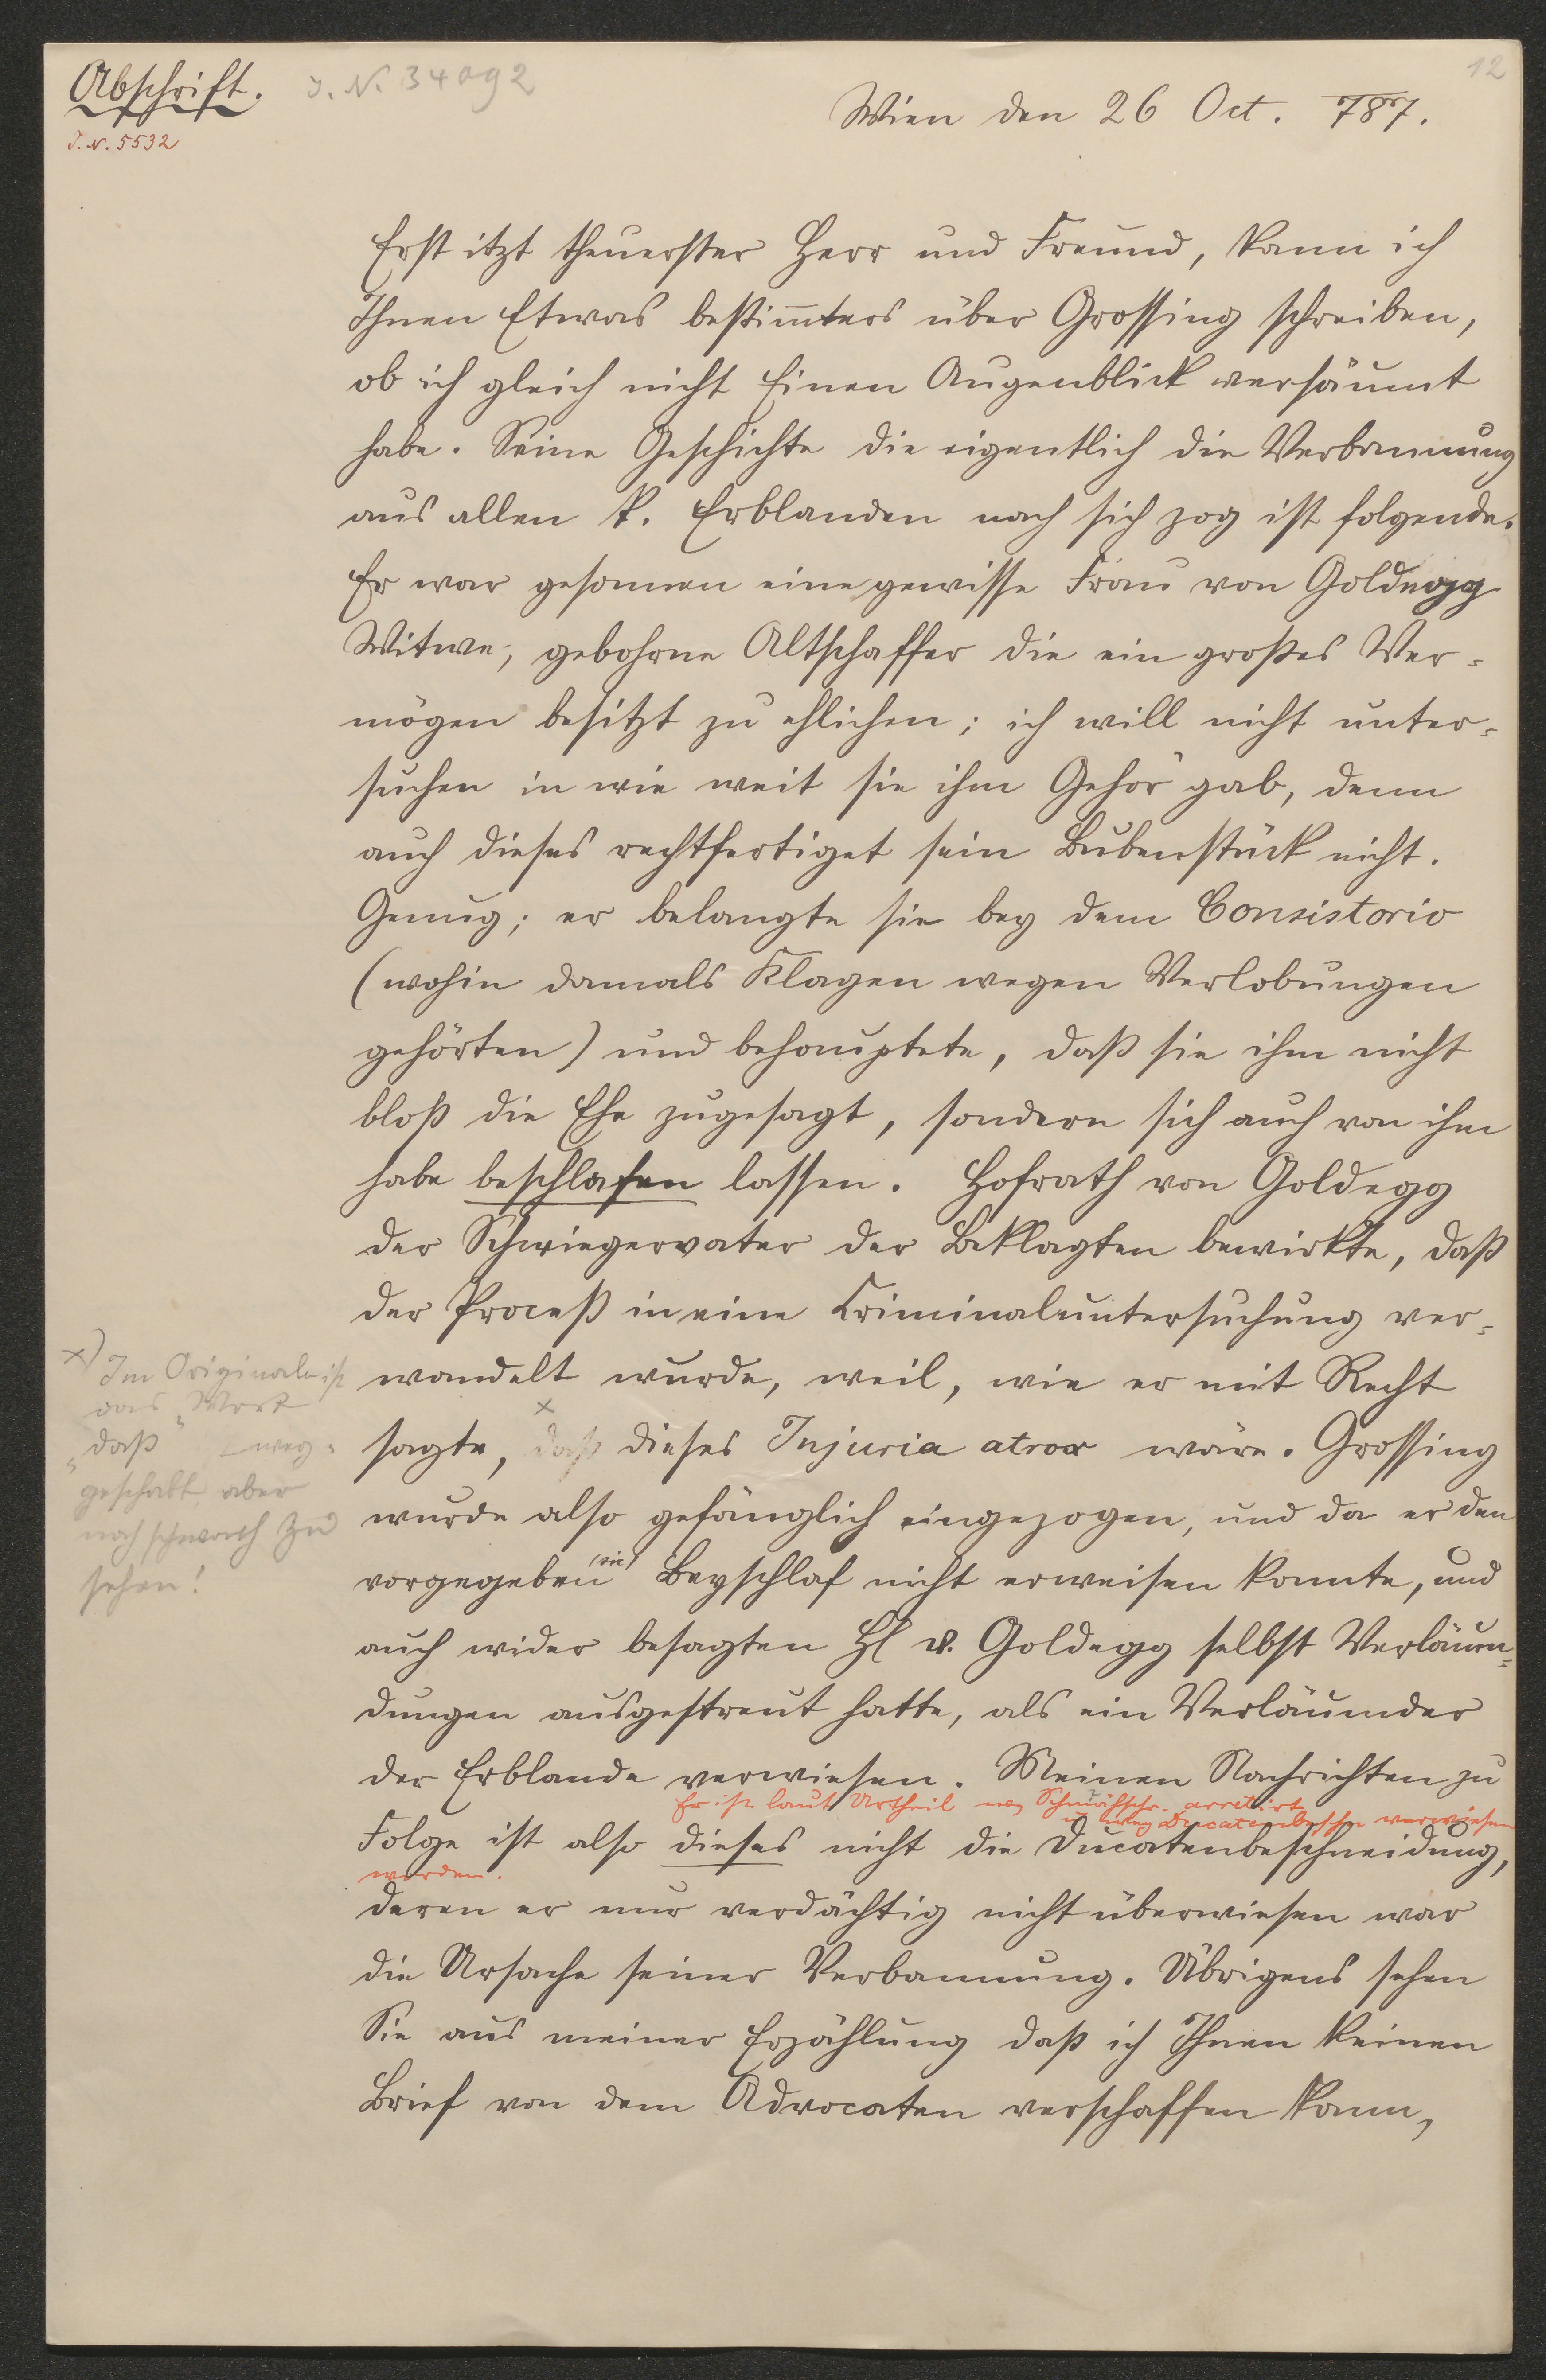 Abschrift.
J. N. 34092
12
J. N. 5532
Wien den 26 Oct. 787.
Erst itzt theuerster Herr und Freund, kann ich
Ihnen Etwas bestim̄ters über Grossing schreiben,
ob ich gleich nicht Einen Augenblick versäumt
habe. Seine Geschichte die eigentlich die Verbannung
aus allen k. Erblanden nach sich zog ist folgende.
Er war gesonnen eine gewisse Frau von Goldegg
Witwe, gebohrne Altschaffer die ein großes Ver-
mögen besitzt zu ehlichen; ich will nicht unter-
suchen in wie weit sie ihm Gehör gab, denn
auch dieses rechtfertiget sein Bubenstück nicht.
Genug; er belangte sie bey dem Consistorio
(wohin damals Klagen wegen Verlobungen
gehörten) und behauptete, daß sie ihm nicht
bloß die Ehe zugesagt, sondern sich auch von ihm
habe beschlafen lassen. Hofrath von Goldegg
der Schwiegervater der Beklagten bewirkte, daß
der Proceß in eine Criminaluntersuchung ver-
wandelt wurde, weil, wie er mit Recht
x
sagte, daß dieses Injuria atrox wäre. Grossing
wurde also gefänglich eingezogen, und da er den
vorgegeben (sic) Beyschlaf nicht erweisen konnte, und
auch wider besagten H v. Goldegg selbst Verläum-
dungen ausgestreut hatte, als ein Verläumder
der Erblande verwiesen. Meinen Nachrichten zu
Er ist laut Urtheil weg Schmähschr. arretirt
u. weg Ducatenbeschn verwiesen
worden.
Folge ist also dieses nicht die Ducatenbeschneidung,
deren er nur verdächtig nicht überwiesen war
die Ursache seiner Verbannung. Übrigens sehen
Sie aus meiner Erzählung daß ich Ihnen keinen
Brief von dem Advocaten verschaffen kann,
x) Im Originale ist
das Wort
„daß“ weg-
geschabt aber
noch schwach zu
sehen!